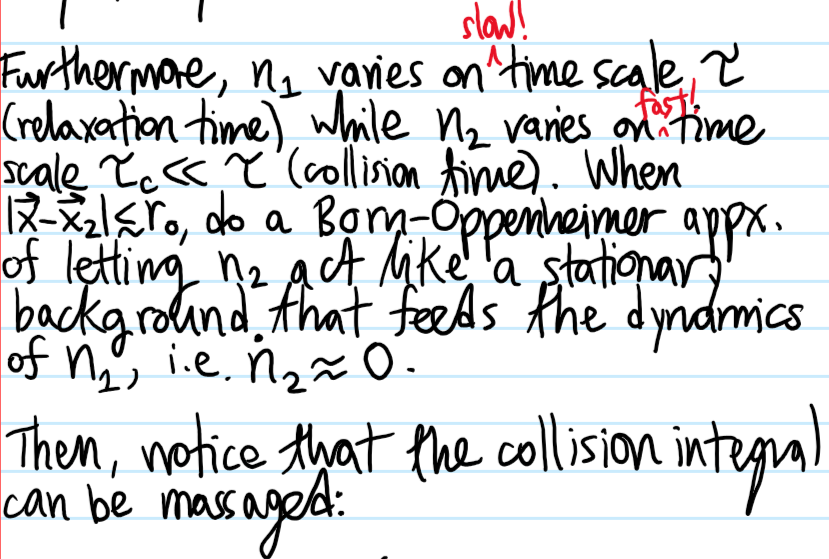 slow!
Furthermore, n₁ varies on ^ time scale τ
fast!
(relaxation time) while n₂ varies on ^ time
scale τ_c << τ (collision time). When
|x⃗-x⃗₂|≲r₀, do a Born-Oppenheimer appx.
of letting n₂ act like a stationary
background that feeds the dynamics
of n₁, i.e. ṅ₂ ≈ 0.
Then, notice that the collision integral
can be massaged: